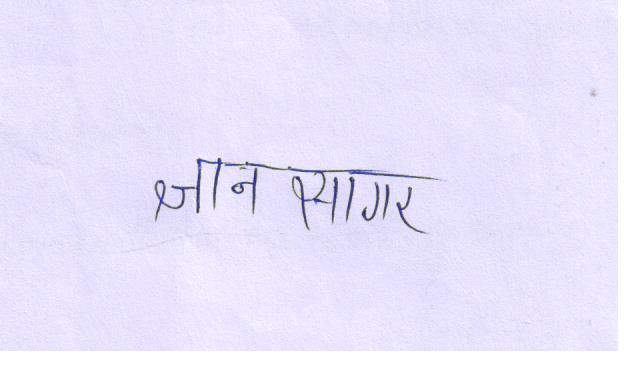 ज्ञान सागर